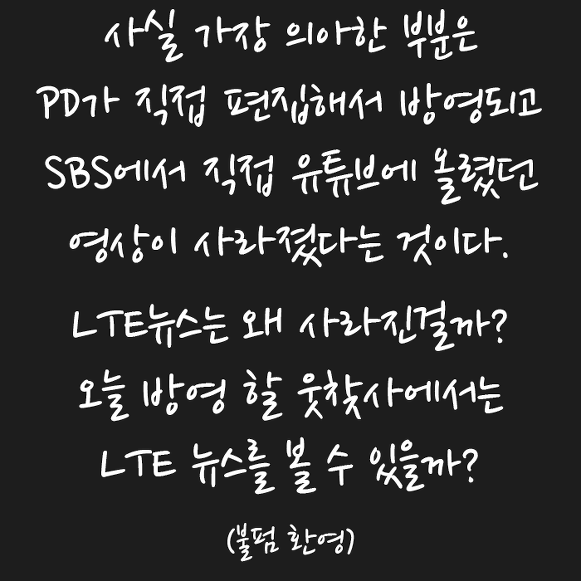 사실 가장 의아한 부분은
PD가 직접 편집해서 방영되고
SBS에서 직접 유튜브에 올렸던
영상이 사라졌다는 것이다.
LTE뉴스는 왜 사라진걸까?
오늘 방영 할 웃찾사에서는
LTE 뉴스를 볼 수 있을까?
(불펌 환영)